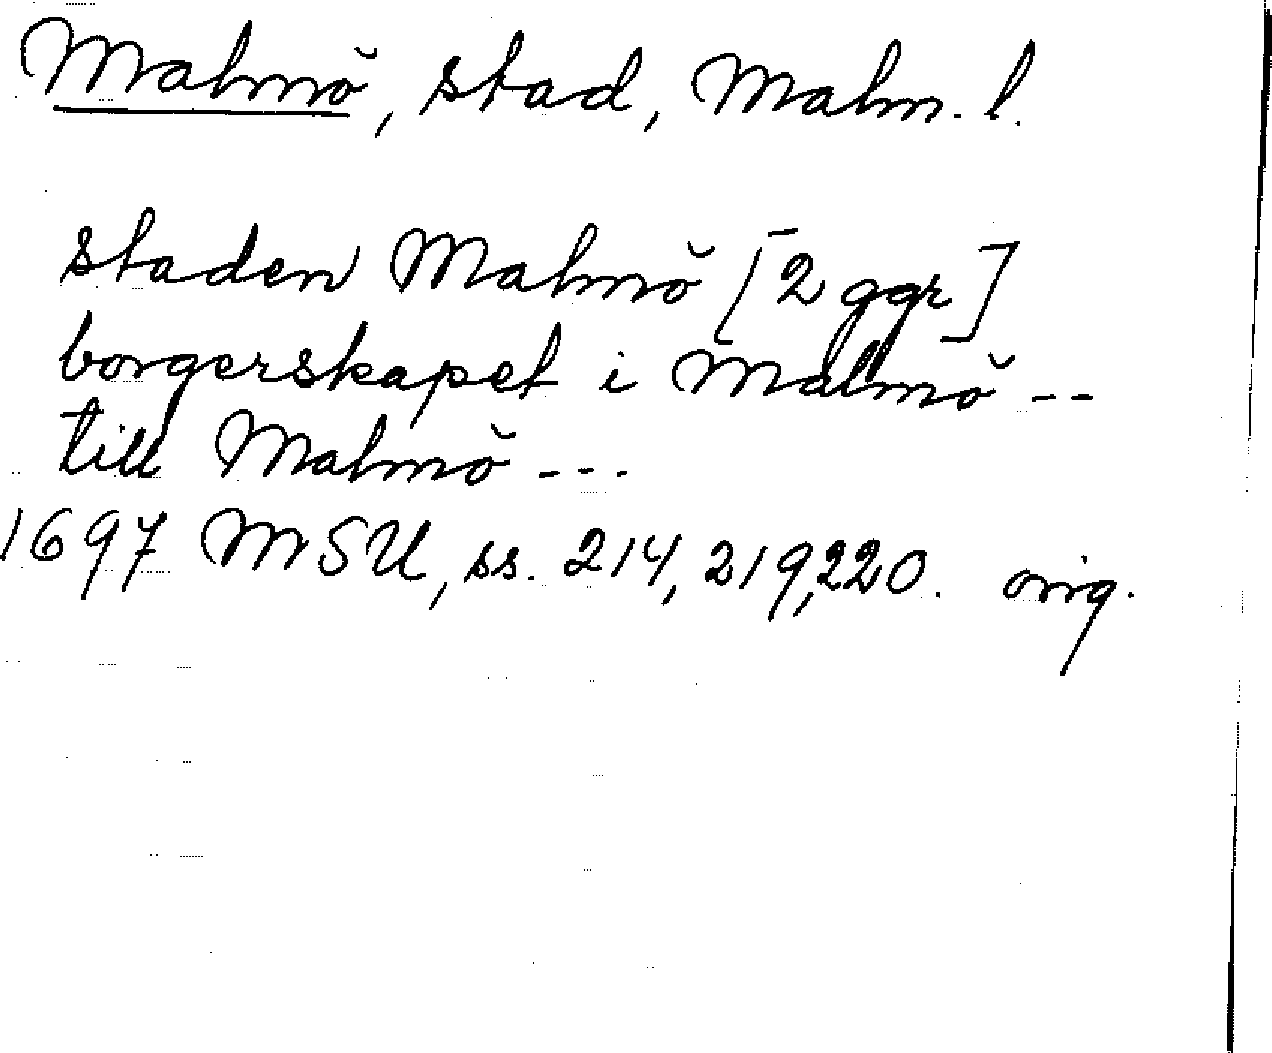 Malmö, stad, Malm. l.
staden Malmö [2 ggr]
borgerskapet i Malmö --
till Malmö ---
1697 MSU, ss. 214, 219, 220. orig.